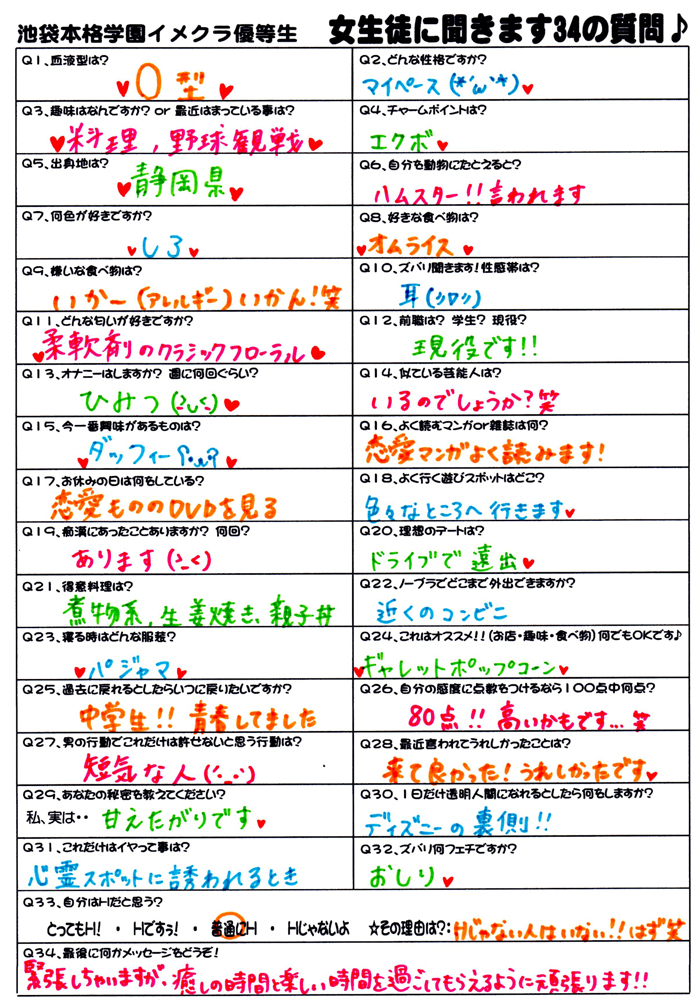 池袋本格学園イメクラ優等生 女生徒に聞きます34の質問♪
Q1、血液型は?
♥O型♥
Q2、どんな性格ですか?
マイペース(*'ω'*)♥
Q3、趣味はなんですか? or 最近はまっている事は?
♥料理,野球観戦♥
Q4、チャームポイントは?
エクボ♥
Q5、出身地は?
♥静岡県♥
Q6、自分を動物にたとえると?
ハムスター!!言われます
Q7、何色が好きですか?
♥しろ♥
Q8、好きな食べ物は?
♥オムライス♥
Q9、嫌いな食べ物は?
いか〜(アレルギー)いかん!笑
Q10、ズバリ聞きます!性感帯は?
耳(ソロソロ)
Q11、どんな匂いが好きですか?
♥柔軟剤のクラシックフローラル♥
Q12、前職は? 学生? 現役?
現役です!!
Q13、オナニーはしますか? 週に何回ぐらい?
ひみつ(>_<)♥
Q14、似ている芸能人は?
いるのでしょうか?笑
Q15、今一番興味があるものは?
♥ダッフィー♥
Q16、よく読むマンガor雑誌は何?
恋愛マンガよく読みます!
Q17、お休みの日は何をしている?
恋愛もののDVDを見る
Q18、よく行く遊びスポットはどこ?
色々なところへ行きます♥
Q19、痴漢にあったことありますか? 何回?
あります(>_<)
Q20、理想のデートは?
ドライブで遠出♥
Q21、得意料理は?
煮物系,生姜焼き,親子丼
Q22、ノーブラでどこまで外出できますか?
近くのコンビニ
Q23、寝る時はどんな服装?
♥パジャマ♥
Q24、これはオススメ!!(お店・趣味・食べ物)何でもOKです♪
♥ギャレットポップコーン♥
Q25、過去に戻れるとしたらいつに戻りたいですか?
中学生!!青春してました
Q26、自分の感度に点数をつけるなら100点中何点?
80点!!高いかもです...笑
Q27、男の行動でこれだけは許せないと思う行動は?
短気な人(´･_･`)
Q28、最近言われてうれしかったことは?
来て良かった!うれしかったです♥
Q29、あなたの秘密を教えてください?
私、実は・・甘えたがりです♥
Q30、1日だけ透明人間になれるとしたら何をしますか?
ディズニーの裏側!!
Q31、これだけはイヤって事は?
心霊スポットに誘われるとき
Q32、ズバリ何フェチですか?
おしり♥
Q33、自分はHだと思う?
とってもH! ・ Hですぅ! ・ 普通にH ・ Hじゃないよ ☆その理由は?:Hじゃない人はいない!!はず笑
Q34、最後に何かメッセージをどうぞ!
緊張しちゃいますが、癒しの時間と楽しい時間を過ごしてもらえるように頑張ります!!